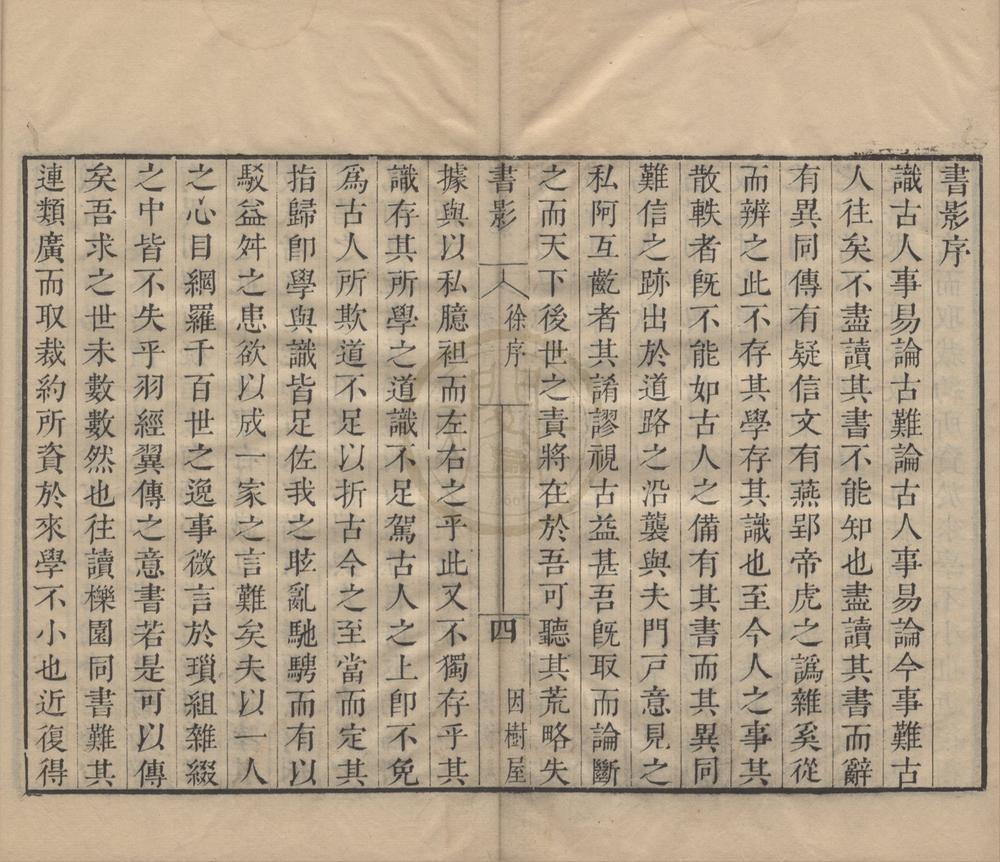 書影序
識古人事易論古難論古人事易論今事難古
人往矣不盡讀其書不能知也盡讀其書而辭
有異同傳有疑信文有燕郢帝虎之譌雜奚從
而辨之此不存其學存其識也至今人之事其
散軼者旣不能如古人之備有其書而其異同
難信之跡出於道路之沿襲與夫門戸意見之
私阿互齕者其誵謬視古益甚吾旣取而論斷
之而天下後世之責將在於吾可聽其荒略失
書影 徐序 四 因樹屋
據與以私臆袒而左右之乎此又不獨存乎其
識存其所學之道識不足駕古人之上卽不免
爲古人所欺道不足以折古今之至當而定其
指歸卽學與識皆足佐我之眩亂馳騁而有以
駁益舛之患欲以成一家之言難矣夫以一人
之心目網羅千百世之逸事微言於瑣組雜綴
之中皆不失乎羽經翼傳之意書若是可以傳
矣吾求之世未數數然也往讀櫟園同書難其
連類廣而取裁約所資於來學不小也近復得